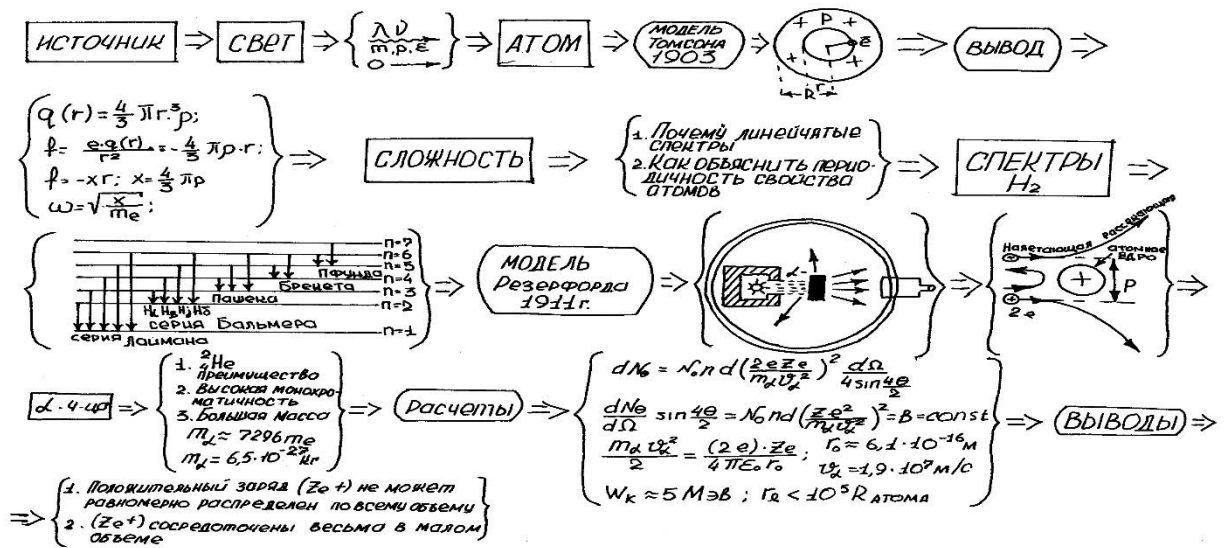 ИСТОЧНИК ⇒ СВЕТ ⇒ { λν m,p,ε 0 → } ⇒ АТОМ ⇒ МОДЕЛЬ ТОМСОНА 1903 ⇒ + P + ē + + R r ⇒ ВЫВОД ⇒
q(r) = 4/3 πr.³ρ;
f = e·q(r)/r² = -4/3 πρ·r;
f = -xr; x = 4/3 πρ
ω = √(x/mₑ);
⇒ СЛОЖНОСТЬ ⇒
1. Почему линейчатые
спектры
2. Как объяснить перио-
дичность свойства
атомов
⇒ СПЕКТРЫ
H₂ ⇒
n=7
n=6
n=5
Пфунда n=4
Брекета n=3
Пашена n=2
Hα Hβ Hγ Hδ
серия Бальмера n=1
серия Лаймана
⇒ МОДЕЛЬ
Резерфорда
1911г. ⇒
α-
⇒
Рассеивающая
Налетающая
атомное
ядро
+
P
2e
⇒
α-ч-ца ⇒
1. ²₄He
преимущество
2. Высокая монохро-
матичность
3. Большая масса
m_α ≈ 7296mₑ
m_α = 6,5·10⁻²⁷кг
⇒ Расчеты ⇒
dNθ = N₀nd(2eZe/m_αϑ_α²)² dΩ/4sin4θ/2
dNθ/dΩ sin4θ/2 = N₀nd(Ze²/m_αϑ_α²)² = B = const
m_αϑ_α²/2 = (2e)·Ze/4πε₀r₀; r₀ ≈ 6,1·10⁻¹⁶м
ϑ_α = 1,9·10⁷м/с
Wк ≈ 5 МэВ; rя < 10⁵R АТОМА
⇒ ВЫВОДЫ ⇒
⇒ 1. Положительный заряд (Ze+) не может
равномерно распределен по всему объему
2. (Ze+) сосредоточены весьма в малом
объеме